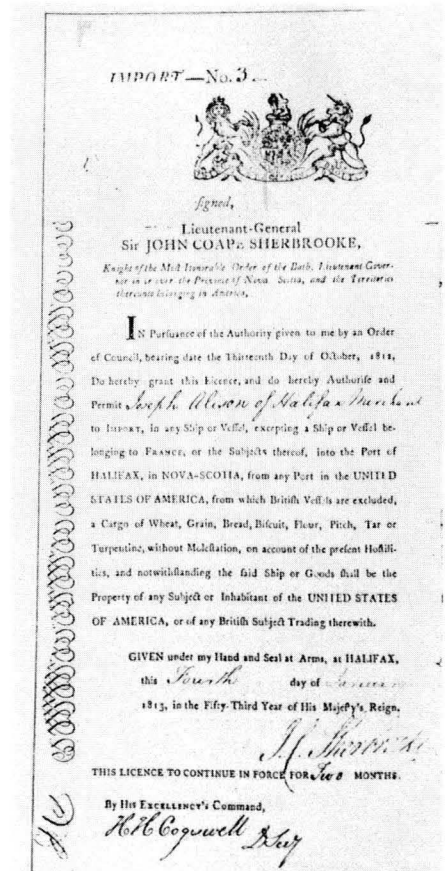 IMPORT—No. 3
signed,
Lieutenant-General
Sir JOHN COAPE SHERBROOKE,
Knight of the Most Honorable Order of the Bath, Lieutenant Gover-
nor in or over the Province of Nova Scotia, and the Territories
thereunto belonging in America,
IN Pursuance of the Authority given to me by an Order
of Council, bearing date the Thirteenth Day of October, 1812,
Do hereby grant this Licence, and do hereby Authorise and
Permit Joseph Alison of Halifax Merchant
to IMPORT, in any Ship or Vessel, excepting a Ship or Vessel be-
longing to FRANCE, or the Subjects thereof, into the Port of
HALIFAX, in NOVA-SCOTIA, from any Port in the UNITED
STATES OF AMERICA, from which British Vessels are excluded,
a Cargo of Wheat, Grain, Bread, Biscuit, Flour, Pitch, Tar or
Turpentine, without Molestation, on account of the present Hostili-
ties, and notwithstanding the said Ship or Goods shall be the
Property of any Subject or Inhabitant of the UNITED STATES
OF AMERICA, or of any British Subject Trading therewith.
GIVEN under my Hand and Seal at Arms, at HALIFAX,
this Fourth day of
1813, in the Fifty-Third Year of His Majesty's Reign.
J. C. Sherbrooke
THIS LICENCE TO CONTINUE IN FORCE FOR Two MONTHS.
By His EXCELLENCY's Command,
H H Cogswell